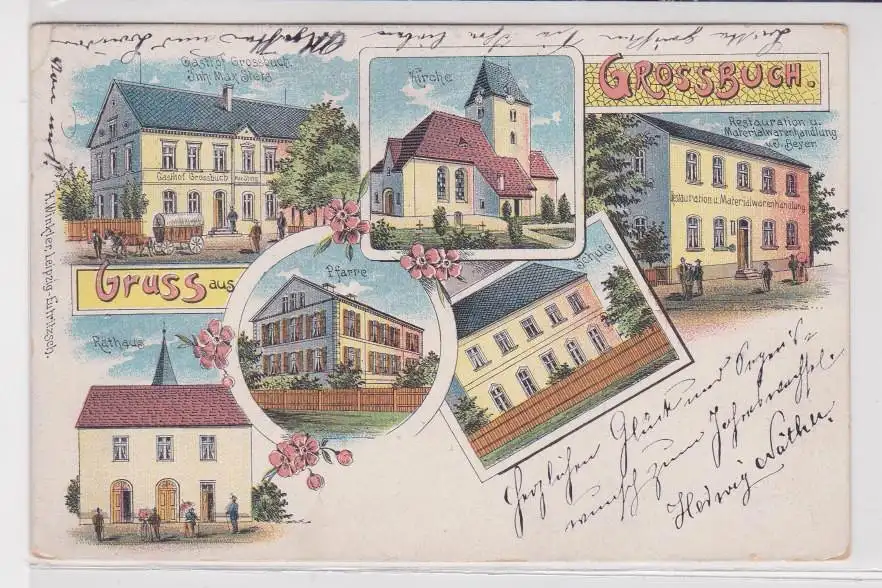 Gasthof Grossbuch
Inh. Max Sterz
Gasthof Grossbuch
Kirche
GROSSBUCH.
Restauration u.
Materialwarenhandlung
v. J. Beyer
Restauration u. Materialwarenhandlung
GRUSS aus
Pfarre
Schule
Rathaus
H. Winkler, Leipzig-Eutritzsch.
Herzlichen Glück und Segens=
wunsch zum Jahreswechsel
Hedwig Näther.